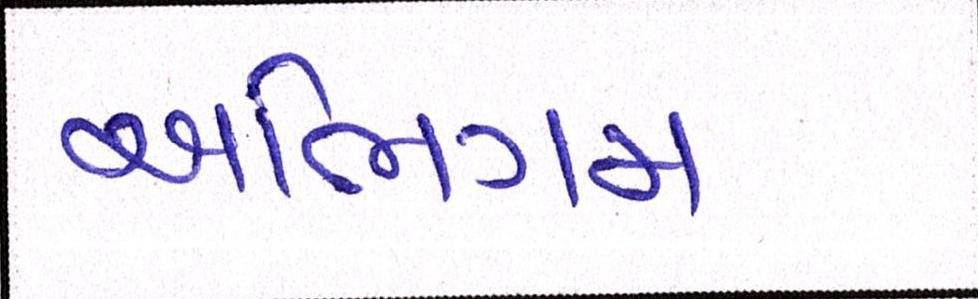 અભિગમ